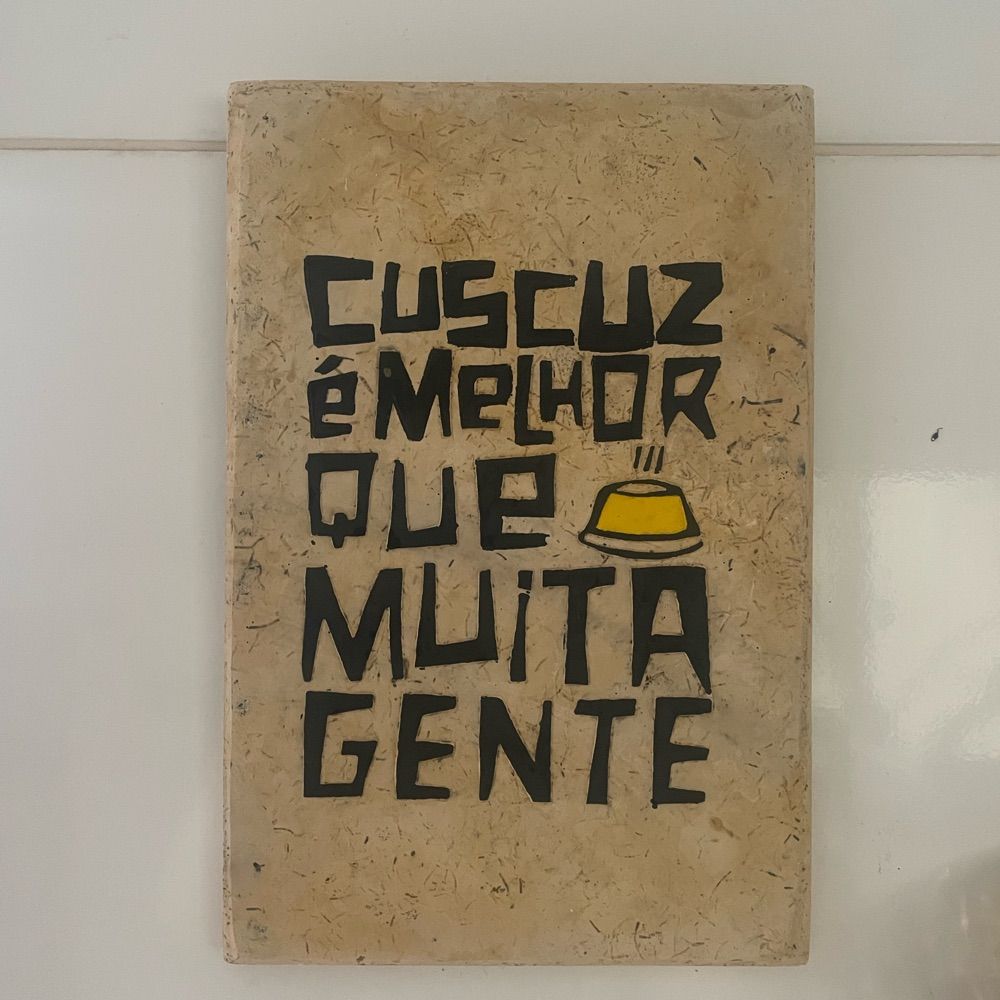 CUSCUZ
é MeLHOR
QUe
MUiTA
GENTE